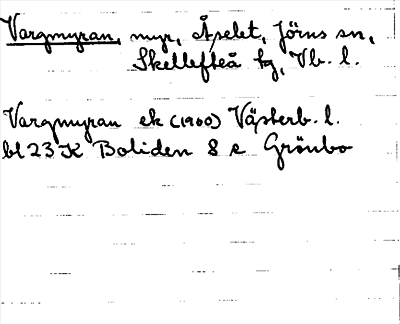 Vargmyran, myr, Åselet, Jörns sn,
Skellefteå kg, Vb. l.
Vargmyran ek (1960) Västerb. l.
bl 23 K Boliden 8 e Grönbo